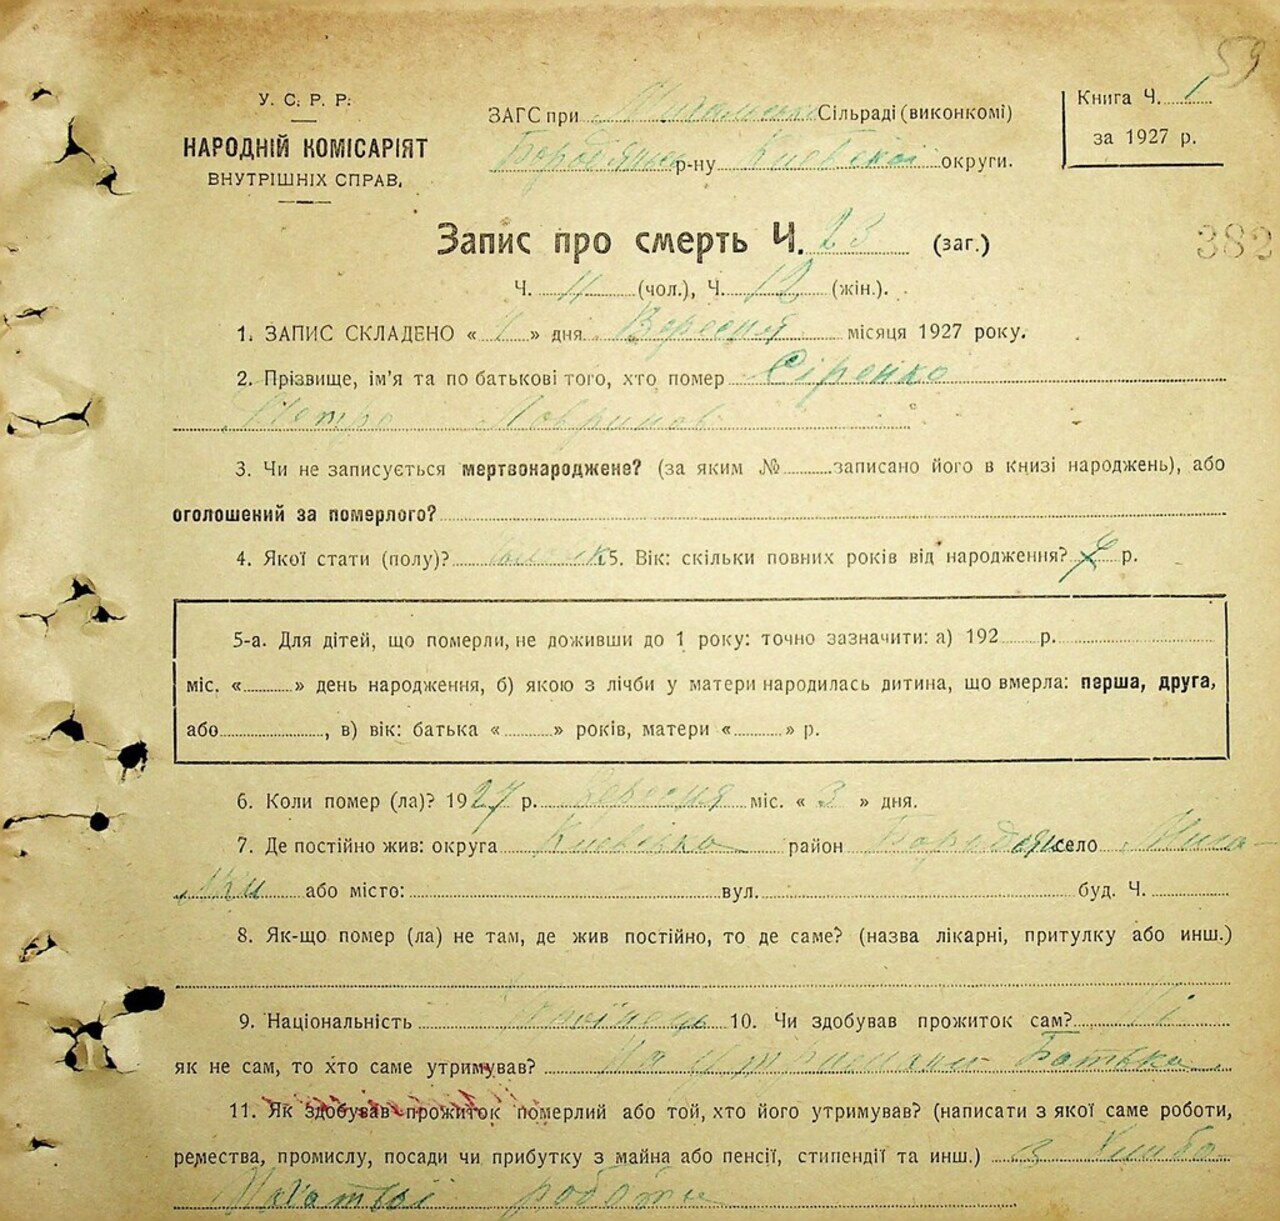 59
У. С. Р. Р.
НАРОДНІЙ КОМІСАРІЯТ
ВНУТРІШНІХ СПРАВ.
ЗАГС при Мигальськ Сільраді (виконкомі)
Бородянськ р-ну Київської округи.
Книга Ч. 1
за 1927 р.
Запис про смерть Ч. 23 (заг.)
382
Ч. 11 (чол.), Ч. 12 (жін.).
1. ЗАПИС СКЛАДЕНО « 4 » дня Вересня місяця 1927 року.
2. Прізвище, ім'я та по батькові того, хто помер Сіренко
Петро Лавринов
3. Чи не записується мертвонароджене? (за яким № записано його в книзі народжень), або
оголошений за померлого?
4. Якої стати (полу)? 5. Вік: скільки повних років від народження? р.
5-а. Для дітей, що померли, не доживши до 1 року: точно зазначити: а) 192 р.
міс. « » день народження, б) якою з лічби у матери народилась дитина, що вмерла: перша, друга,
або , в) вік: батька « » років, матери « » р.
6. Коли помер (ла)? 1927 р. Вересня міс. « 3 » дня.
7. Де постійно жив: округа Київська район Бородян село Мига-
лки або місто: вул. буд. Ч.
8. Як-що помер (ла) не там, де жив постійно, то де саме? (назва лікарні, притулку або инш.)
9. Національність Українець 10. Чи здобував прожиток сам? Ні
як не сам, то хто саме утримував? На утриманні Батька
11. Як здобував прожиток померлий або той, хто його утримував? (написати з якої саме роботи,
ремества, промислу, посади чи прибутку з майна або пенсії, стипендії та инш.) З Хлібо
роботи